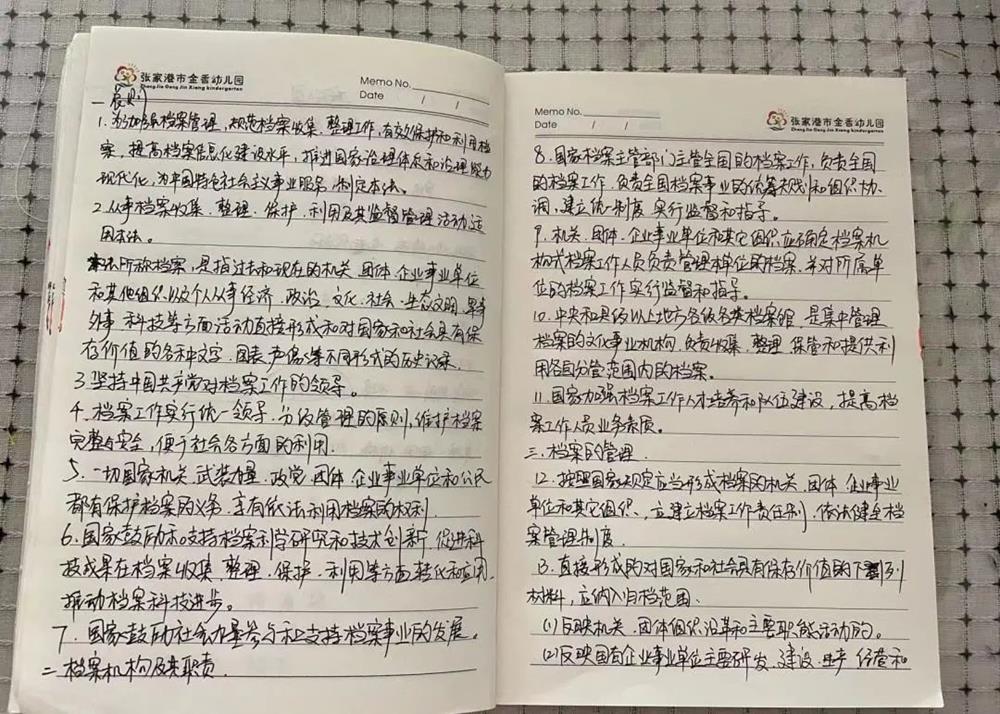 张家港市金香幼儿园
Zhang Jia Gang Jin Xiang kindergarten
Memo No.
Date / /
一 总则
1. 为加强档案管理，规范档案收集、整理工作，有效保护和利用档
案，提高档案信息化建设水平，推进国家治理体系和治理能力
现代化，为中国特色社会主义事业服务，制定本法。
2. 从事档案收集、整理、保护、利用及其监督管理活动，适
用本法。
本法所称档案，是指过去和现在的机关、团体、企业事业单位
和其他组织以及个人从事经济、政治、文化、社会、生态文明、军事、
外事、科技等方面活动直接形成的对国家和社会具有保
存价值的各种文字、图表、声像等不同形式的历史记录。
3. 坚持中国共产党对档案工作的领导。
4. 档案工作实行统一领导、分级管理的原则，维护档案
完整与安全，便于社会各方面的利用。
5. 一切国家机关、武装力量、政党、团体、企业事业单位和公民
都有保护档案的义务，享有依法利用档案的权利。
6. 国家鼓励和支持档案科学研究和技术创新，促进科
技成果在档案收集、整理、保护、利用等方面转化和应用，
推动档案科技进步。
7. 国家鼓励社会力量参与和支持档案事业的发展。
二 档案机构及其职责
Memo No.
Date / /
张家港市金香幼儿园
Zhang Jia Gang Jin Xiang kindergarten
8. 国家档案主管部门主管全国的档案工作，负责全国
的档案工作，负责全国档案事业的统筹规划和组织协
调，建立统一制度，实行监督和指导。
9. 机关、团体、企业事业单位和其它组织应确定档案机
构或档案工作人员负责管理本单位的档案，并对所属单
位的档案工作实行监督和指导。
10. 中央和县级以上地方各级各类档案馆，是集中管理
档案的文化事业机构，负责收集、整理、保管和提供利
用各自分管范围内的档案。
11. 国家加强档案工作人才培养和队伍建设，提高档
案工作人员业务素质。
三. 档案的管理
12. 按照国家规定应当形成档案的机关、团体、企业事业
单位和其它组织，应建立档案工作责任制，依法健全档
案管理制度。
13. 直接形成的对国家和社会具有保存价值的下列
材料，应纳入归档范围：
(1) 反映机关、团体组织沿革和主要职能活动的。
(2) 反映国有企业事业单位主要研发、建设、生产、经营和